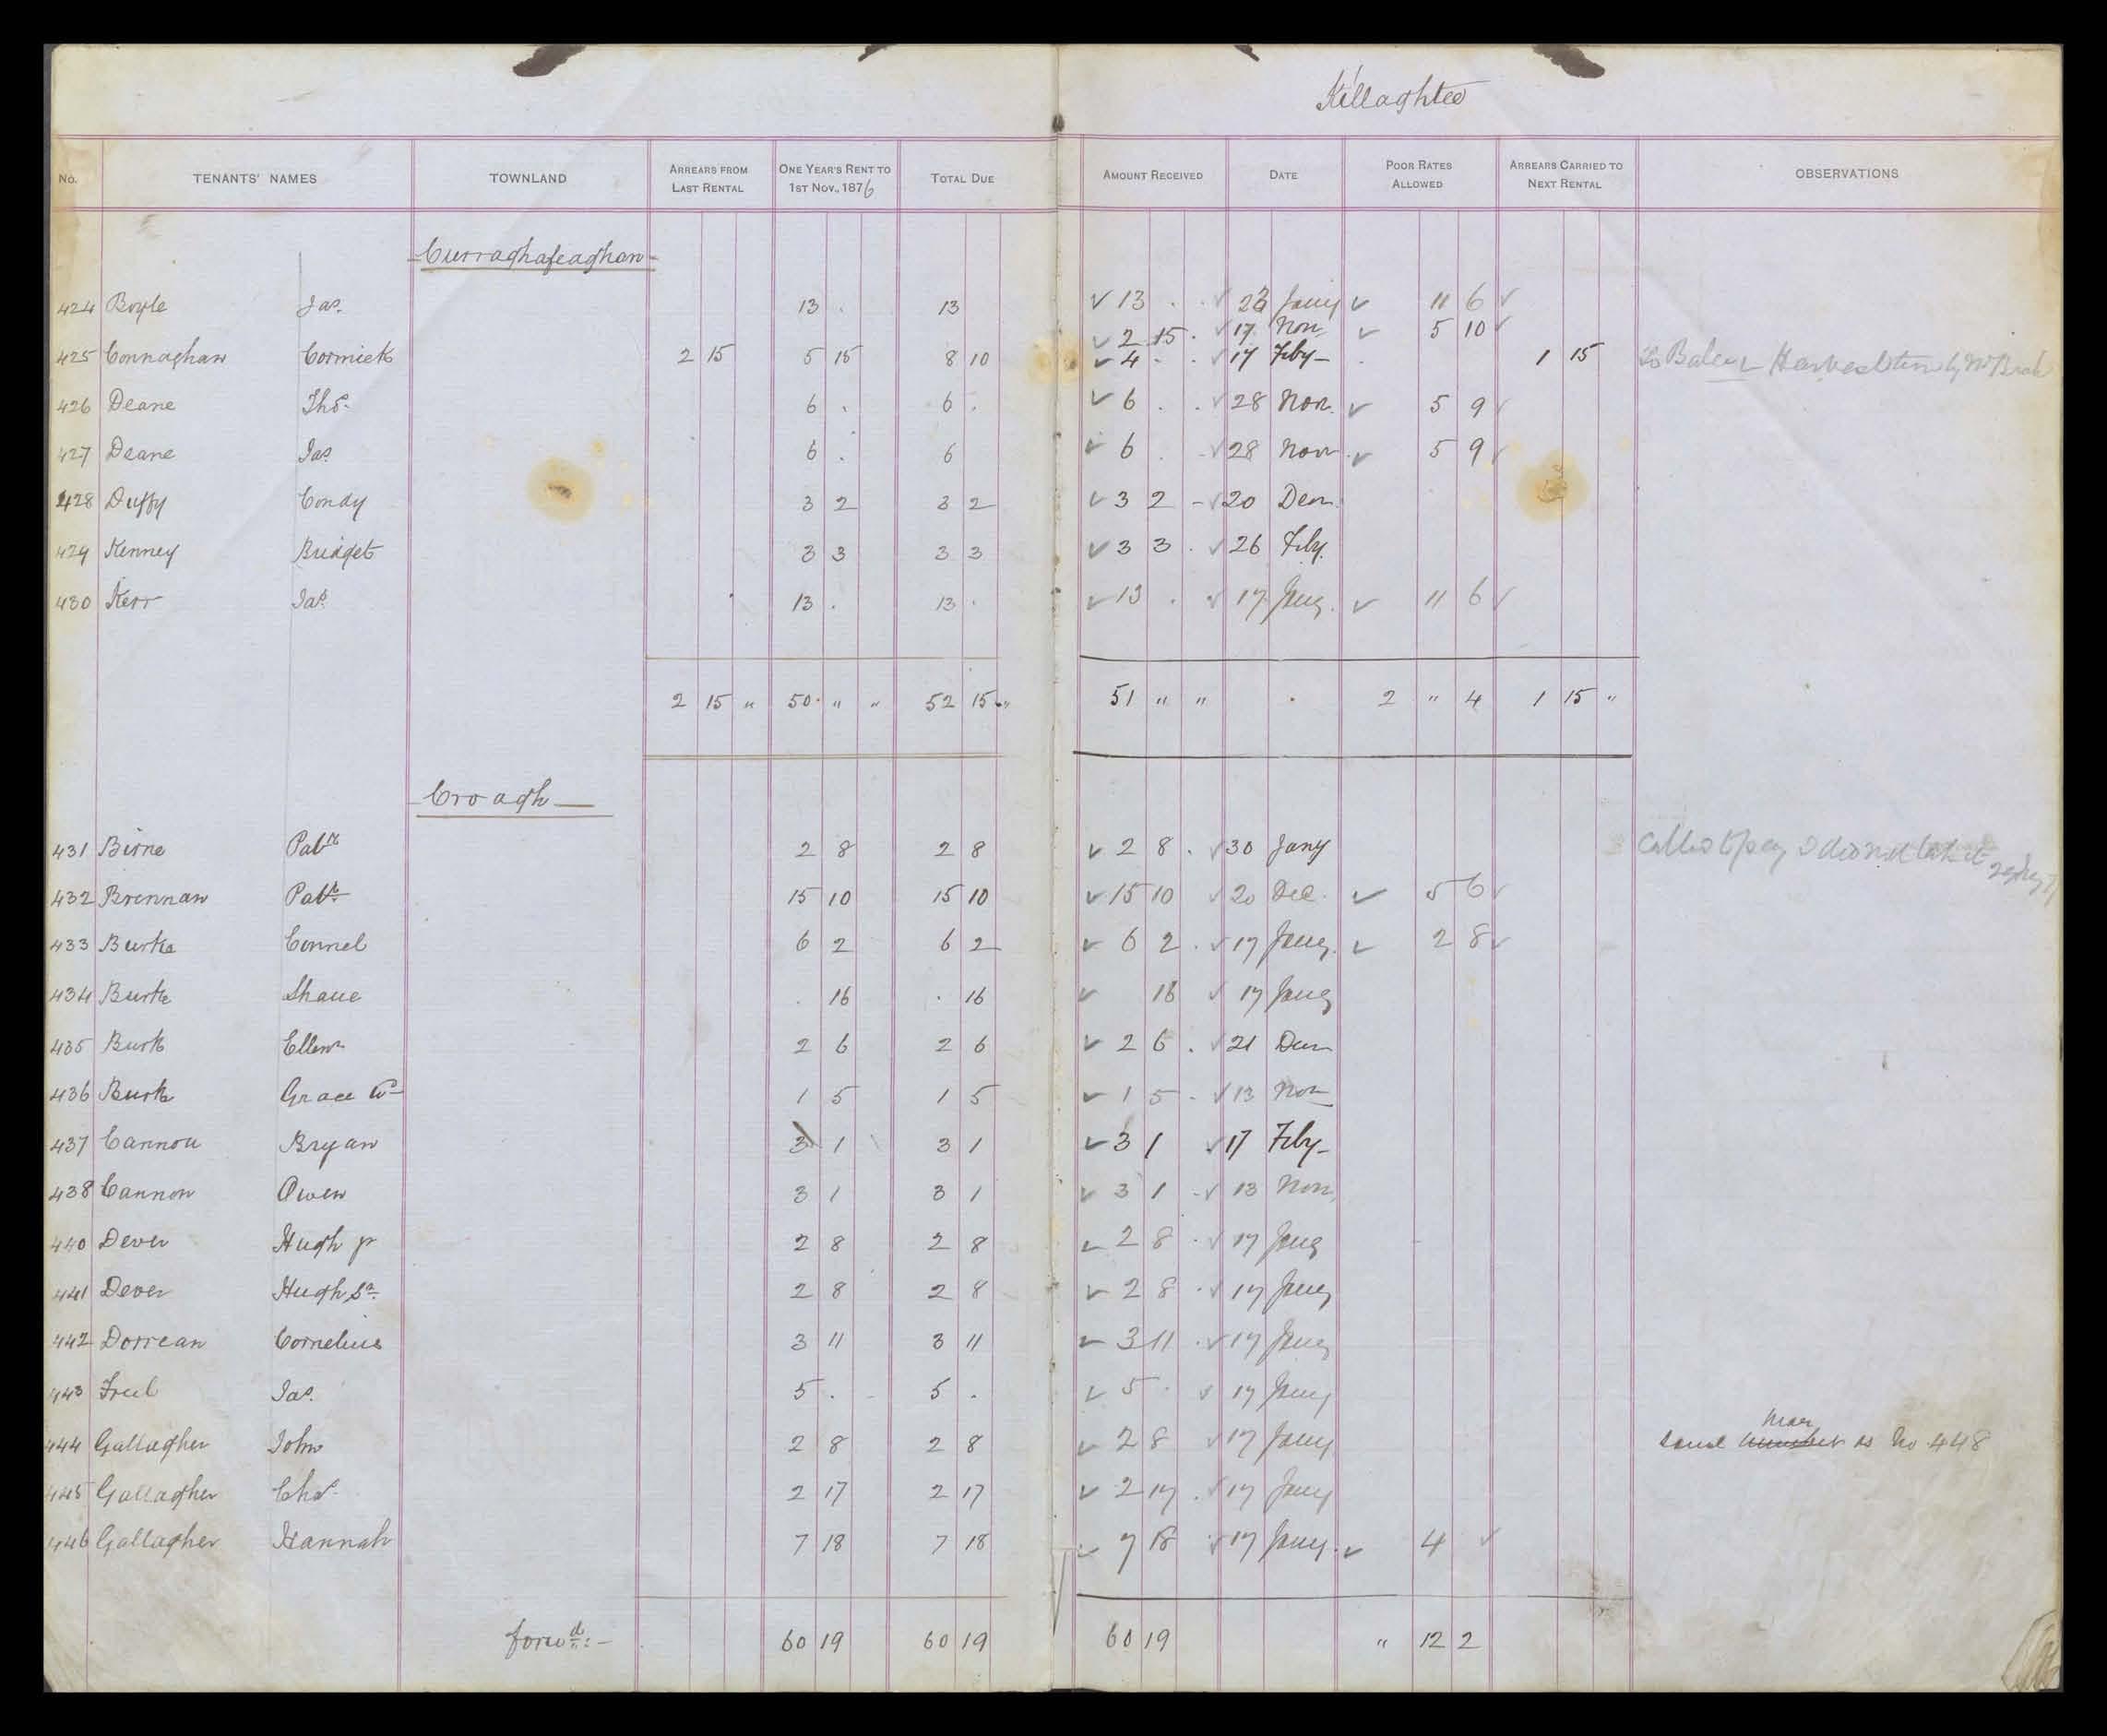 Killaghtee
No. TENANTS' NAMES TOWNLAND ARREARS FROM LAST RENTAL ONE YEAR'S RENT TO 1ST NOV., 1876 TOTAL DUE AMOUNT RECEIVED DATE POOR RATES ALLOWED ARREARS CARRIED TO NEXT RENTAL OBSERVATIONS
Curraghafeaghan
424 Boyle Jas. 13 . 13 ✓ 13 . . ✓ 23 Jany ✓ 11 6 ✓
✓ 2 15 . ✓ 17 Nov ✓ 5 10 ✓
425 Connaghan Cormick 2 15 5 15 8 10 ✓ 4 . . ✓ 17 Feby - 1 15
426 Deane Thos. 6 . 6 . ✓ 6 . . ✓ 28 Nov. ✓ 5 9 ✓
427 Deane Jas. 6 . 6 ✓ 6 . - ✓ 28 Nov ✓ 5 9 ✓
428 Duffy Condy 3 2 3 2 ✓ 3 2 - ✓ 20 Decr.
429 Kenney Bridget 3 3 3 3 ✓ 3 3 . ✓ 26 Feby.
430 Kerr Jas. 13 . 13 . ✓ 13 . . ✓ 17 Jany. ✓ 11 6 ✓
2 15 " 50 " " 52 15 " 51 " " 2 " 4 1 15 "
Croagh
431 Birne Patk 2 8 2 8 ✓ 2 8 . ✓ 30 Jany
432 Brennan Patk 15 10 15 10 ✓ 15 10 ✓ 20 Dec. ✓ 5 6 ✓
433 Burke Connel 6 2 6 2 ✓ 6 2 . ✓ 17 Jany. ✓ 2 8 ✓
434 Burke Shane . 16 . 16 ✓ 16 ✓ 17 Jany
435 Burk Ellenr 2 6 2 6 ✓ 2 6 . ✓ 21 Decr
436 Burk Grace Wo 1 5 1 5 ✓ 1 5 . ✓ 13 Nov
437 Cannon Bryan 3 1 3 1 ✓ 3 1 ✓ 17 Feby -
438 Cannon Owen 3 1 3 1 ✓ 3 1 - ✓ 13 Nov.
440 Dever Hugh jr 2 8 2 8 ✓ 2 8 . ✓ 17 Jany
441 Dever Hugh Sr. 2 8 2 8 ✓ 2 8 . ✓ 17 Jany
442 Dorrean Cornelius 3 11 3 11 ✓ 3 11 . ✓ 17 Jany
443 Freel Jas. 5 . 5 . ✓ 5 . ✓ 17 Jany
444 Gallagher John 2 8 2 8 ✓ 2 8 ✓ 17 Jany same man number as No 448
445 Gallagher Chas. 2 17 2 17 ✓ 2 17 . ✓ 17 Jany
446 Gallagher Hannah 7 18 7 18 ✓ 7 18 ✓ 17 Jany. ✓ 4 ✓
forwd:- 60 19 60 19 60 19 " 12 2